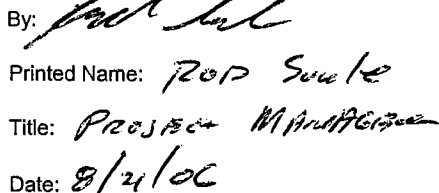 By:
Printed Name: ROD Soule
Title: PROJECT MANAGER
Date: 8/21/06